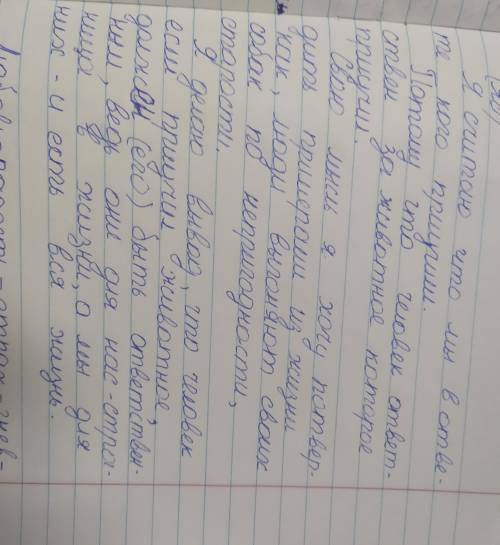 Я считаю что мы в отве-
те кого приучили.
Потому что человек ответ-
ствен за животное которое
приучил.
Свою мыль я хочу потвер-
дить примерами из жизни
как, люди выгоняют своих
собак по непригодности,
старости.
Я делаю вывод, что человек
если приучил животное,
должен (его) быть ответствен-
ни, ведь они для нас - стран-
ница в жизни, а мы для
них - и есть вся жизнь.